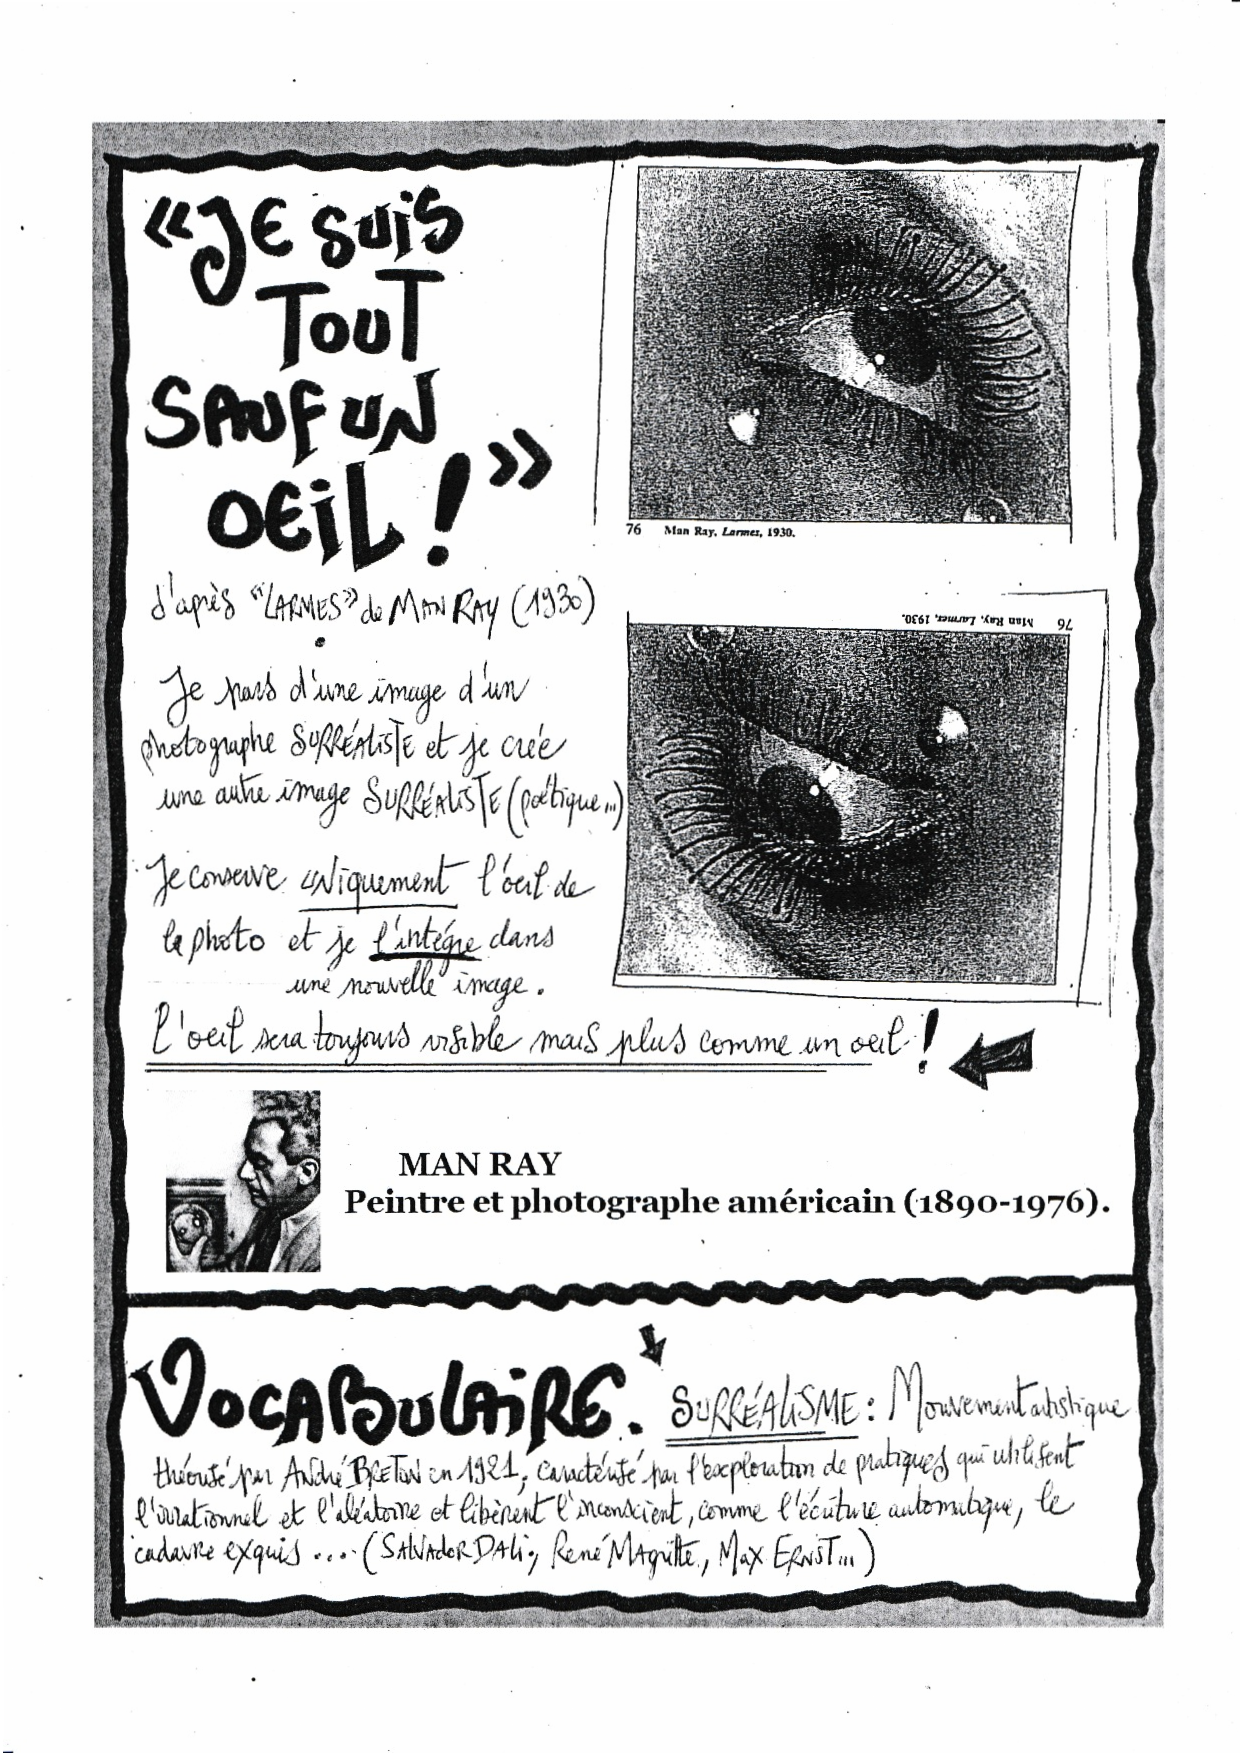 « JE SUIS
TOUT
SAUF UN
OEIL ! »
76 Man Ray, Larmes, 1930.
d'après "LARMES" de MAN RAY (1930)
76 Man Ray, Larmes, 1930.
Je pars d'une image d'un
photographe SURRÉALISTE et je crée
une autre image SURRÉALISTE (poétique...)
Je conserve uniquement l'oeil de
la photo et je l'intégre dans
une nouvelle image.
L'oeil sera toujours visible mais plus comme un oeil !
MAN RAY
Peintre et photographe américain (1890-1976).
VOCABULAIRE. SURRÉALISME : Mouvement artistique
théorisé par ANDRÉ BRETON en 1921, caractérisé par l'exploration de pratiques qui utilisent
l'irrationnel et l'aléatoire et libèrent l'inconscient, comme l'écriture automatique, le
cadavre exquis .... (SALVADOR DALi, René MAgritte, MAX ERNST...)